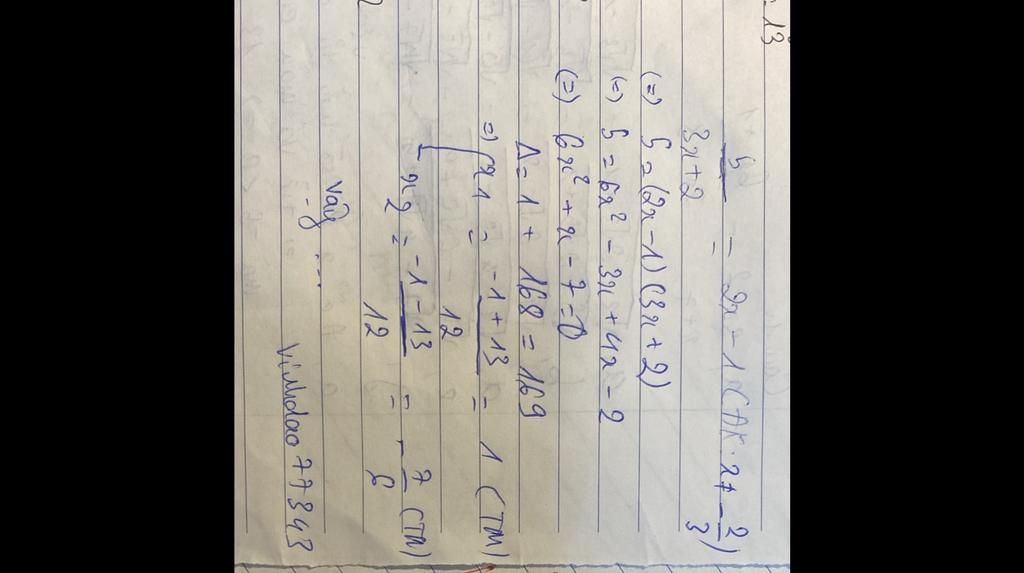 = 13
5/(3x+2) = 2x - 1 (ĐK: x ≠ -2/3)
(=) 5 = (2x - 1)(3x + 2)
(=) 5 = 6x² - 3x + 4x - 2
(=) 6x² + x - 7 = 0
Δ = 1 + 168 = 169
=) [x1 = (-1 + 13)/12 = 1 (TM)
x2 = (-1 - 13)/12 = -7/6 (TM)
Vậy ...
Vinhdao77343